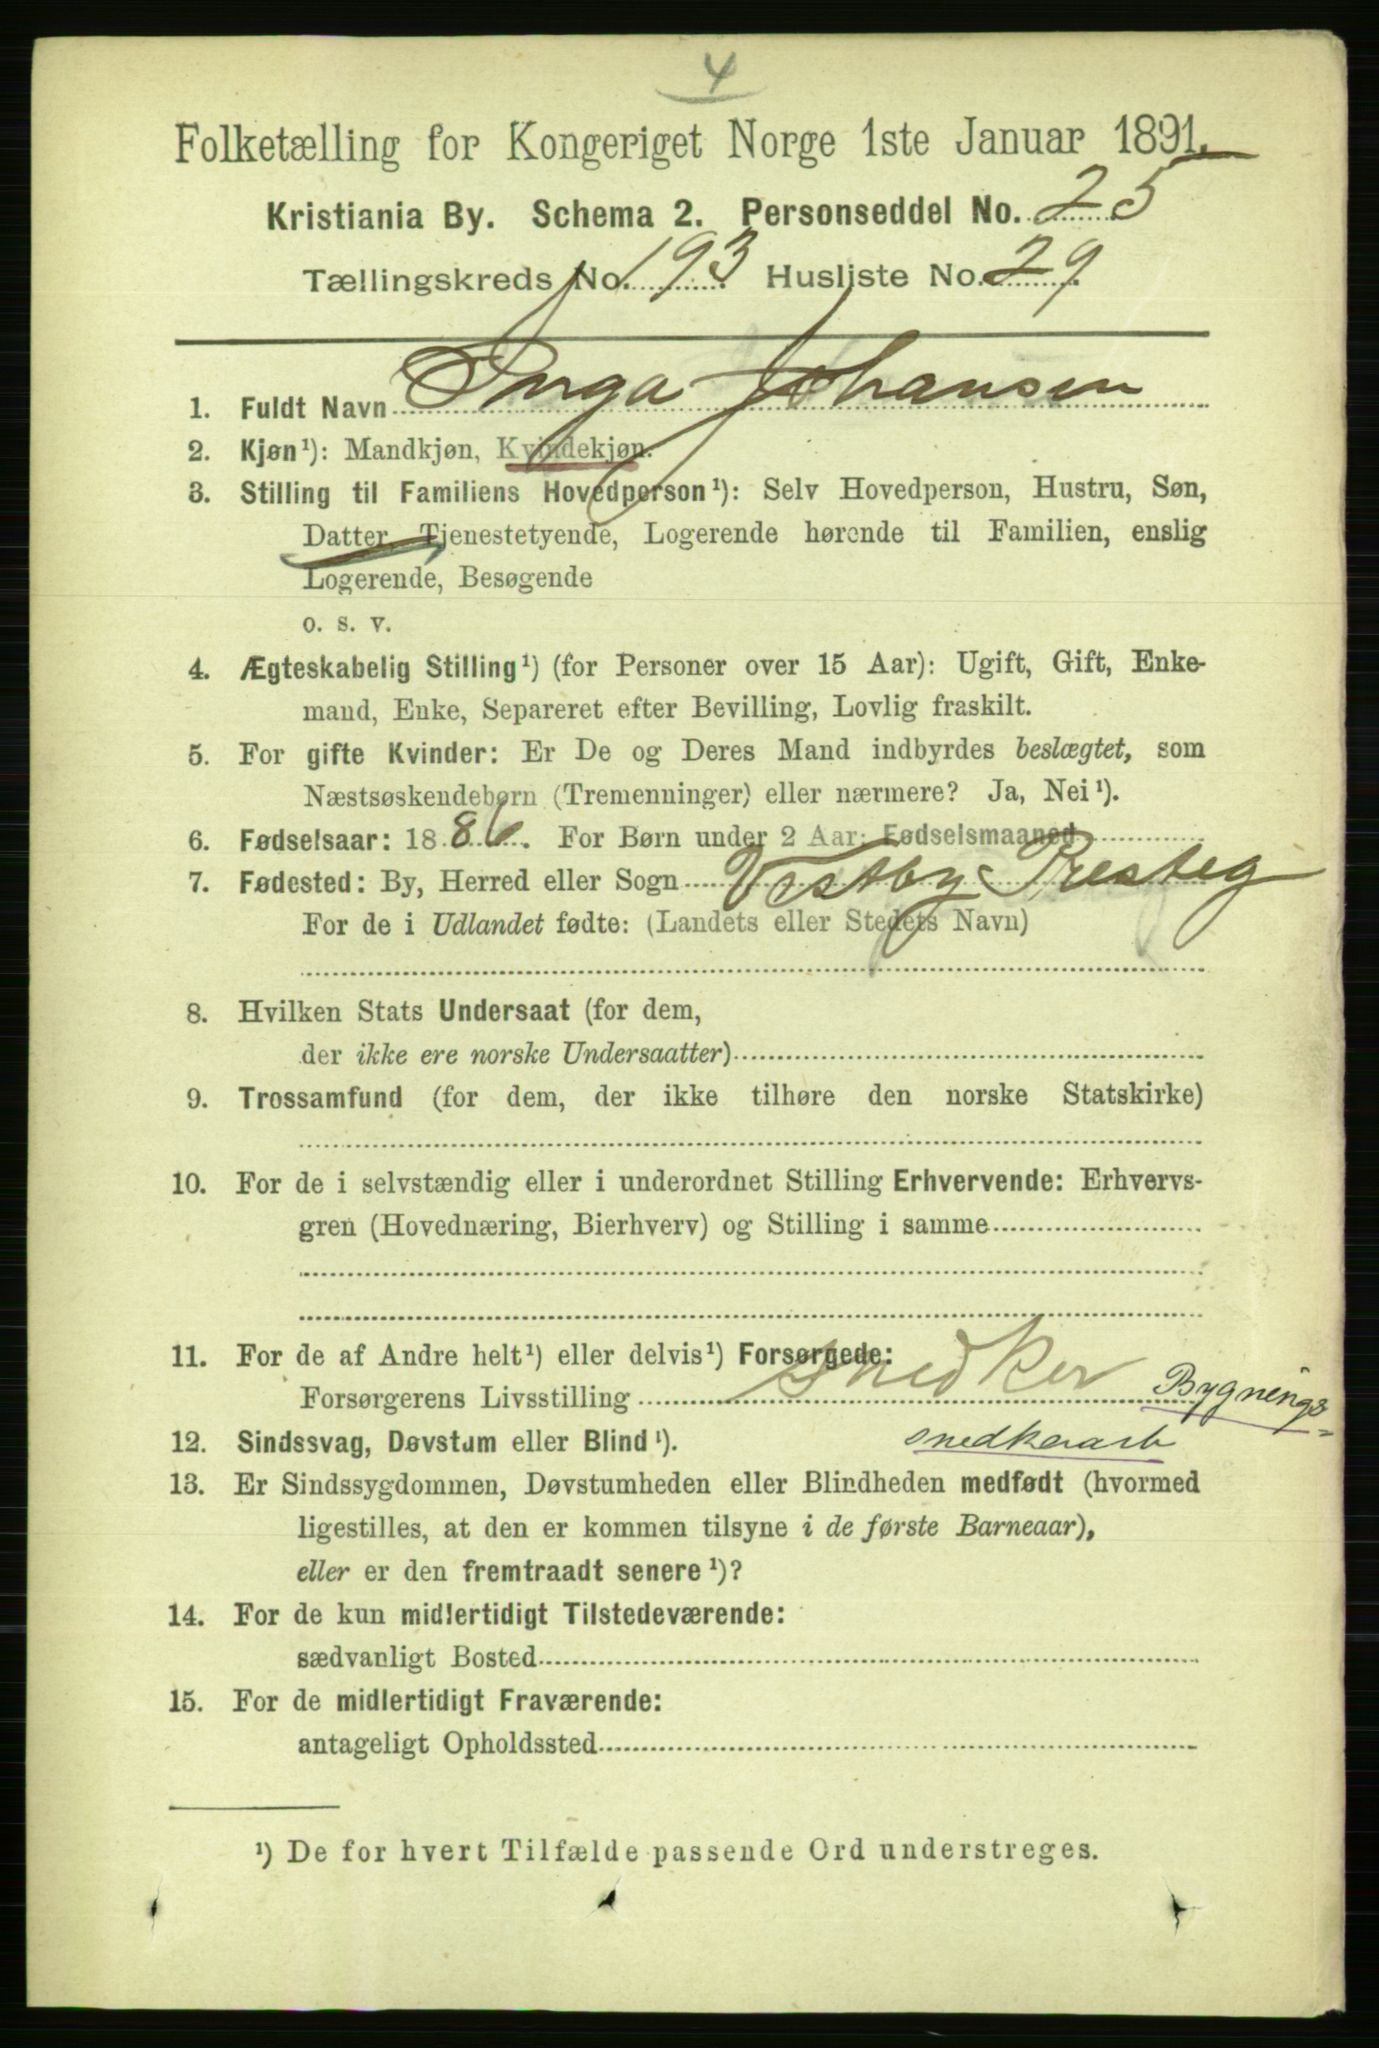 4
Folketælling for Kongeriget Norge 1ste Januar 1891.
Kristiania By. Schema 2. Personseddel No. 25
Tællingskreds No. 193. Husliste No. 29.
1. Fuldt Navn Inga Johansen
2. Kjøn¹): Mandkjøn, Kvindekjøn.
3. Stilling til Familiens Hovedperson¹): Selv Hovedperson, Hustru, Søn,
Datter, Tjenestetyende, Logerende hørende til Familien, enslig
Logerende, Besøgende
o. s. v.
4. Ægteskabelig Stilling¹) (for Personer over 15 Aar): Ugift, Gift, Enke-
mand, Enke, Separeret efter Bevilling, Lovlig fraskilt.
5. For gifte Kvinder: Er De og Deres Mand indbyrdes beslægtet, som
Næstsøskendebørn (Tremenninger) eller nærmere? Ja, Nei¹).
6. Fødselsaar: 1886. For Børn under 2 Aar: Fødselsmaaned
7. Fødested: By, Herred eller Sogn Vestby Presteg
For de i Udlandet fødte: (Landets eller Stedets Navn)
8. Hvilken Stats Undersaat (for dem,
der ikke ere norske Undersaatter)
9. Trossamfund (for dem, der ikke tilhøre den norske Statskirke)
10. For de i selvstændig eller i underordnet Stilling Erhvervende: Erhvervs-
gren (Hovednæring, Bierhverv) og Stilling i samme
11. For de af Andre helt¹) eller delvis¹) Forsørgede:
Forsørgerens Livsstilling snedker Bygnings-
snedkerarb
12. Sindssvag, Døvstum eller Blind¹).
13. Er Sindssygdommen, Døvstumheden eller Blindheden medfødt (hvormed
ligestilles, at den er kommen tilsyne i de første Barneaar),
eller er den fremtraadt senere¹)?
14. For de kun midlertidigt Tilstedeværende:
sædvanligt Bosted
15. For de midlertidigt Fraværende:
antageligt Opholdssted
¹) De for hvert Tilfælde passende Ord understreges.